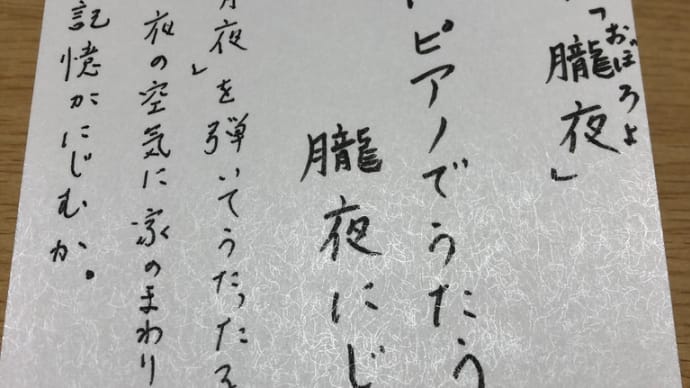 「朧夜」おぼろよ
ピアノでうたう
朧夜にじ
月夜」を弾いてうたったろ
夜の空気に家のまわり
記憶がにじむか。